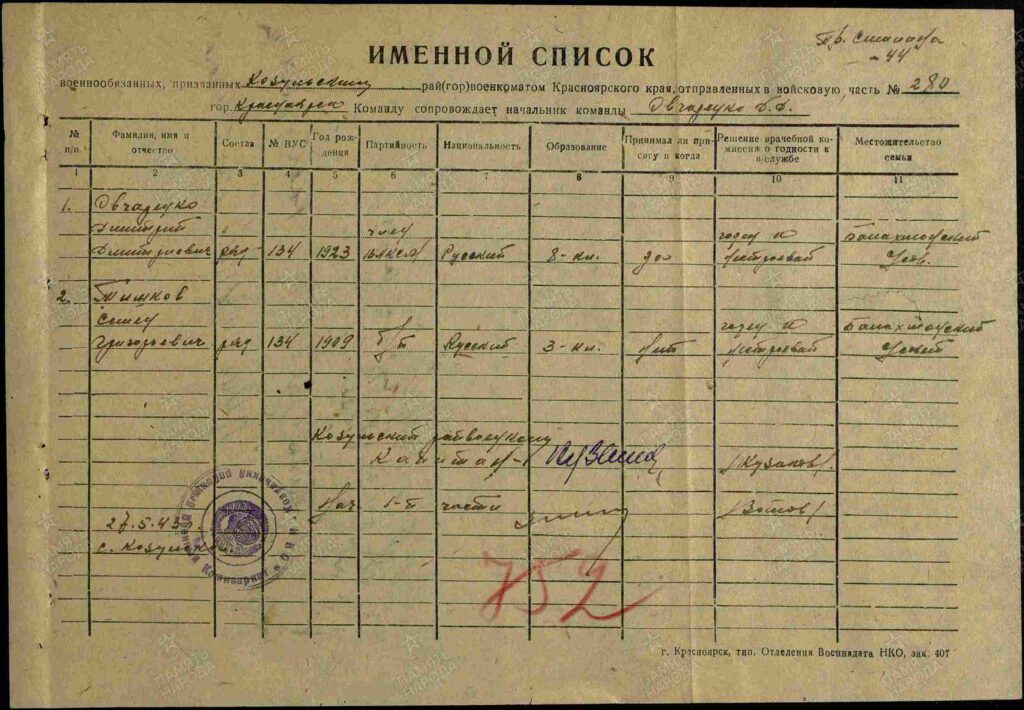 ИМЕННОЙ СПИСОК
военнообязанных, призванных Козульским рай(гор)военкоматом Красноярского края, отправленных в войсковую часть № 280
гор. Красноярск Команду сопровождает начальник команды Овчаренко Д. Д.
№ п/п. Фамилия, имя и отчество Состав № ВУС Год рождения Партийность Национальность Образование Принимал ли присягу и когда Решение врачебной комиссии о годности к в/службе Местожительство семьи
1 2 3 4 5 6 7 8 9 10 11
1. Овчаренко
Дмитрий член годен к Балахтонский
Дмитриевич ряд 134 1923 ВЛКСМ Русский 8-кл. строевой
2. Тишков
Семен годен к Балахтонский
Григорьевич ряд 134 1909 б/п Русский 3-кл. строевой
Козульский райвоенком
Капитан /Кузаков/.
Нач 1-й части
27.5.43
с. Козулька
752
г. Красноярск, тип. Отделения Воениздата НКО, зак. 407
ПАМЯТЬ НАРОДА